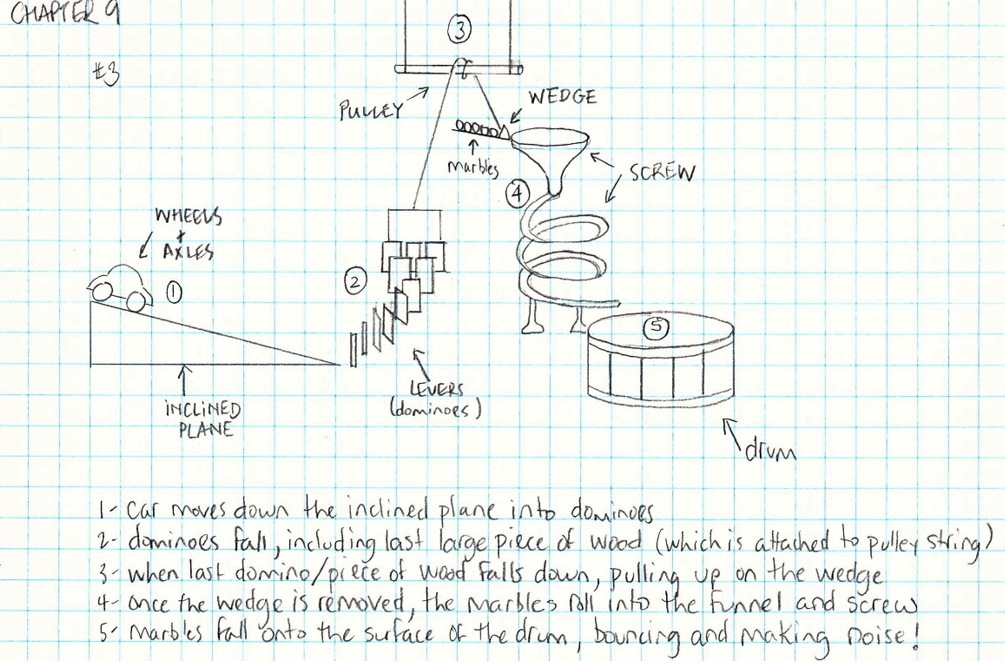 CHAPTER 9
#3
3
PULLEY
WEDGE
marbles
SCREW
4
WHEELS
+
AXLES
1
2
5
LEVERS
(dominoes)
INCLINED
PLANE
drum
1- car moves down the inclined plane into dominoes
2- dominoes fall, including last large piece of wood (which is attached to pulley string)
3- when last domino/piece of wood falls down, pulling up on the wedge
4- once the wedge is removed, the marbles roll into the funnel and screw
5- marbles fall onto the surface of the drum, bouncing and making noise!